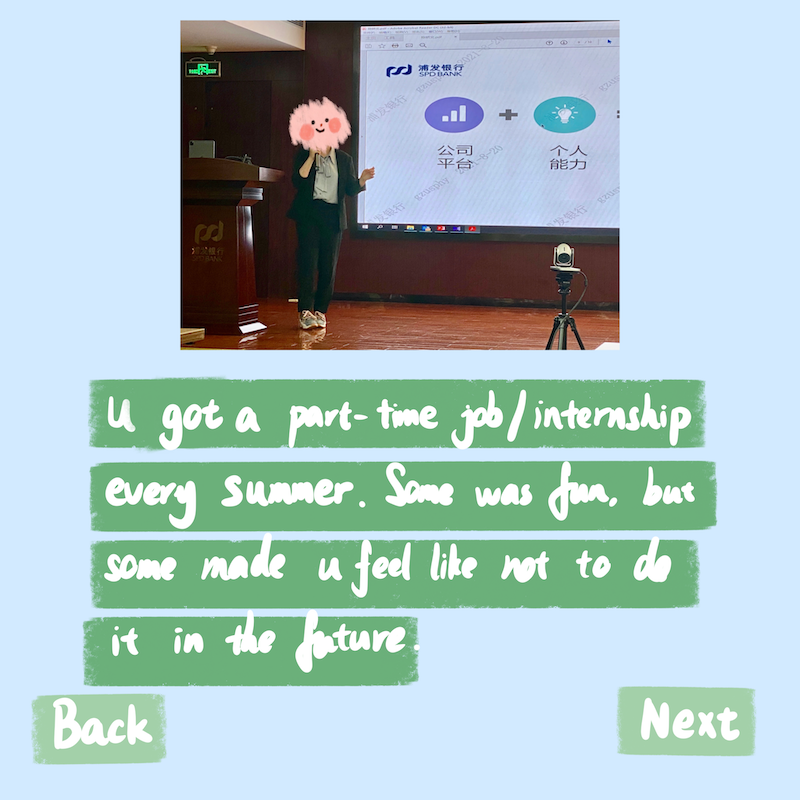 浦发银行
SPD BANK
公司
平台
个人
能力
浦发银行
SPD BANK
U got a part-time job/internship
every summer. Some was fun, but
some made u feel like not to do
it in the future.
Back
Next